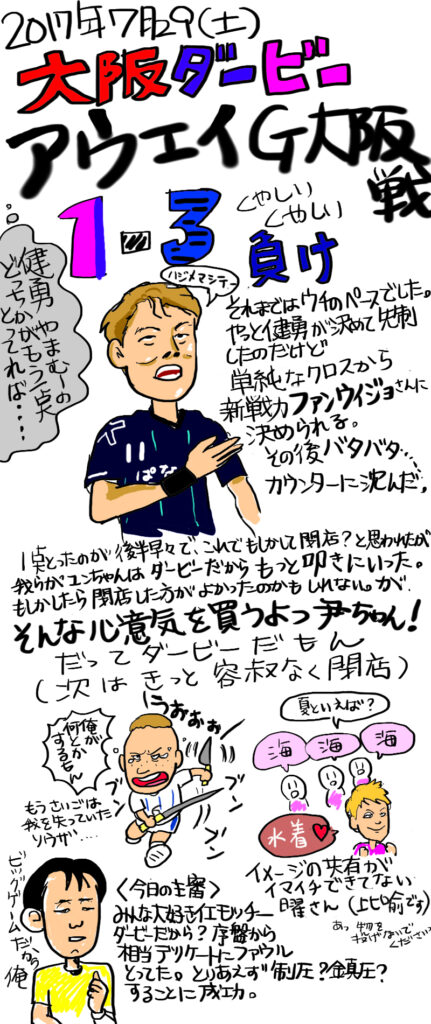 2017年7月29(土)
大阪ダービー
アウェイG大阪戦
1-3
くやしい
くやしい
負け
健勇かやまむーの
どっちかがもう一点
とってれば・・・・
ハジメマシテー
それまではウチのペースでした。
やっと健勇が決めて先制
したのだけど
単純なクロスから
新戦力ファンウィジョさんに
決められる。
その後バタバタ…
カウンターに沈んだ。
ぱな
1点とったのが後半早々で、これでもしかして閉店?と思われたが
我らがユンちゃんはダービーだからもっと叩きにいった。
もしかしたら閉店した方がよかったのかもしれない。が、
そんな心意気を買うよっ尹ちゃん!
だってダービーだもん
(次はきっと容赦なく閉店)
うおぉぉぉ
俺が
何とか
するもん
ブン
ブン
ブン
もうさいごは
我を失っていた
ソウザ・・・・
夏といえば?
海
海
海
水着♥
イメージの共有が
イマイチできてない
曜さん(比喩です)
あっ物を
投げないで
くださいっ
ビッグゲームだから俺
<今日の主審>
みんな大好きイエモッチー
ダービーだから?序盤から
相当デリケートにファウル
とってた。とりあえず制圧?鎮圧?
することに成功。